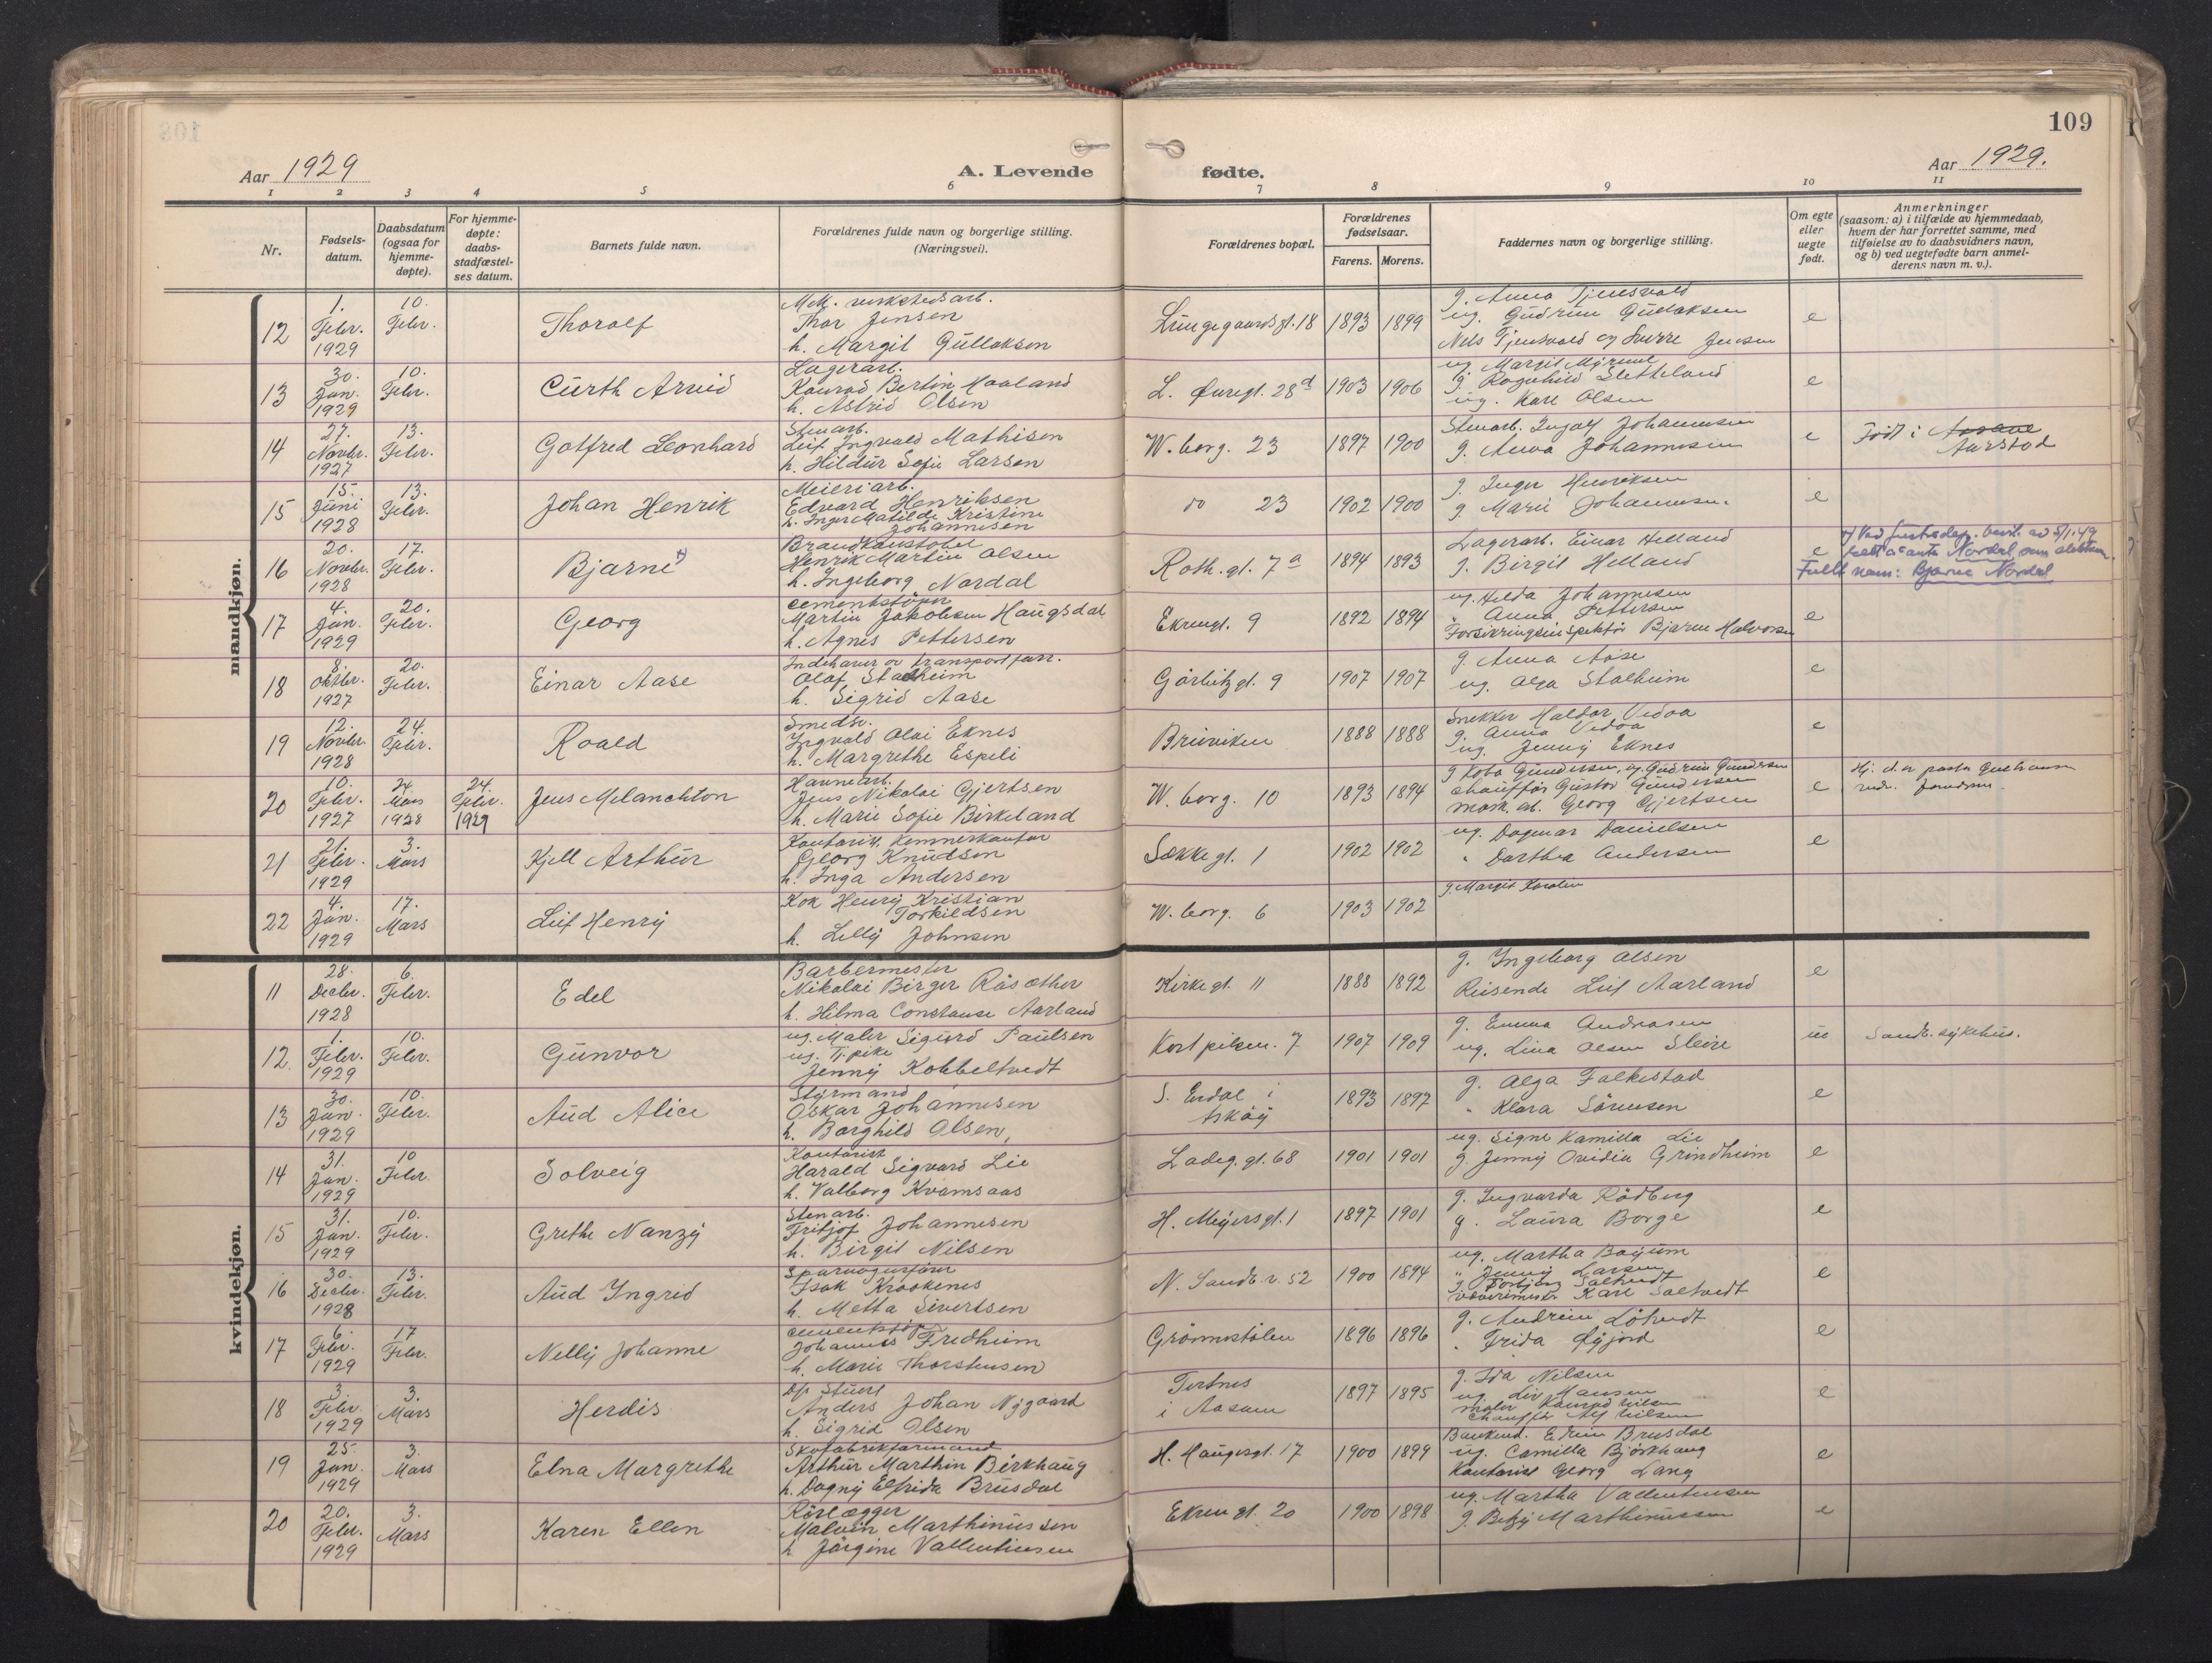 109
Aar 1929
A. Levende
fødte.
Aar 1929.
1 2 3 4 5 6 7 8 9 10 11
Nr.
Fødsels-
datum.
Daabsdatum
(ogsaa for
hjemme-
døpte).
For hjemme-
døpte:
daabs-
stadfæstel-
ses datum.
Barnets fulde navn.
Forældrenes fulde navn og borgerlige stilling.
(Næringsvei).
Forældrenes bopæl.
Forældrenes
fødselsaar.
Farens. Morens.
Faddernes navn og borgerlige stilling.
Om egte
eller
uegte
født.
Anmerkninger
(saasom: a) i tilfælde av hjemmedaab,
hvem der har forrettet samme, med
tilføielse av to daabsvidners navn,
og b) ved uegtefødte barn anmel-
derens navn m. v.).
mandkjøn.
12
1.
Febr.
1929
10.
Febr.
Thoralf
Thor Jensen
h. Margit Gullaksen
Lungegaardsgt. 18
1893 1899
g. Anna Tjensvold
ug. Gudrun Gullaksen
Nels Tjensvold og Sverre Jensen
e
13
30.
Jan.
1929
10.
Febr.
Curth Arvid
Lagerarb.
Konrad Bertin Haaland
h. Astrid Olsen
L. Øuregt. 28d
1903 1906
g. Ragnhild Sletteland
ug. Kare Olsen
e
14
27.
Novbr.
1927
13.
Febr.
Gotfred Leonhard
Stenarb.
Leif Ingvald Mathisen
h. Hildur Sofie Larsen
W. borg. 23
1897 1900
Stenarb. Ingolf Johannesen
g. Anna Johannesen
e
Født i Aasane
Aarstad
15
15.
Juni
1928
13.
Febr.
Johan Henrik
Meieriarb.
Edvard Henriksen
h. Inger Matilde Kristine
Johannesen
do 23
1902 1900
g. Inger Henriksen
g. Marie Johannesen.
e
16
20.
Novbr.
1928
17.
Febr.
Bjarne
Brandkonstabel
Henrik Martin Olsen
h. Ingeborg Nordal
Roth. gt. 7a
1894 1893
Lagerarb. Einar Helland
g. Birgit Helland
e
Fullt navn: Bjarne Nordal
17
4.
Jan.
1929
20.
Febr.
Georg
cementstøper
Martin Jakobsen Haugsdal
h. Agnes Pettersen
Ekrengt. 9
1892 1894
ug. Hilda Johannesen
" Anna Pettersen
Forsikringsinspektør Bjarne Halvorsen
e
18
8.
Oktbr.
1927
20.
Febr.
Einar Aase
Indehaver av transportforr.
Olaf Stalheim
h. Sigrid Aase
Gørbitzgt. 9
1907 1907
g. Anna Aase
ug. Olga Stalheim
e
19
12.
Novbr.
1928
24.
Febr.
Roald
Smedsv.
Ingvald Olai Eknes
h. Margrethe Espeli
Bruviken
1888 1888
Snekker Haldor Vedaa
g. Anna Vedaa
ug. Jenny Eknes
e
20
10.
Febr.
1927
24.
Mars
1928
24.
Febr.
1929
Jens Melanchton
Havnearb.
Jens Nikolai Gjertsen
h. Marie Sofie Birkeland
W. borg. 10
1893 1894
chauffør Gustav Gundersen
mask. arb. Georg Gjertsen
e
21
21.
Febr.
1929
3.
Mars
Kjell Arthur
Kontorist, kemnerkontor
Georg Knudsen
h. Inga Andersen
Sækkegt. 1
1902 1902
ug. Dagmar Danielsen
" Dorthea Andersen
e
22
4.
Jan.
1929
17.
Mars
Leif Henry
Kok Henry Kristian
Torkildsen
h. Lilly Johnsen
W. borg. 6
1903 1902
g. Margit Karolin
kvindekjøn.
11
28.
Decbr.
1928
6.
Febr.
Edel
Barbermester
Nikolai Birger Råsæther
h. Hilma Constanse Aarland
Kirkegt. 11
1888 1892
g. Ingeborg Olsen
Reisende Leif Aarland
e
12.
1.
Febr.
1929
10.
Febr.
Gunvor
ug. Maler Sigurd Paulsen
ug. Tj. pike
Jenny Kobbeltvedt
Kort pilsm. 7
1907 1909
g. Emma Andreasen
ug. Lina Olsen Sleire
ue
Sandv. sykehus.
13
30.
Jan.
1929
10.
Febr.
Aud Alice
Styrmand
Oskar Johannesen
h. Borghild Olsen,
S. Erdal i
Askøy
1893 1897
g. Olga Falkestad
" Klara Sørensen
e
14
31.
Jan.
1929
10
Febr.
Solveig
Kontorist
Harald Sigvard Lie
h. Valborg Kvamsaas
Ladeg. gt. 68
1901 1901
ug. Signe Kamilla Lie
g. Jenny Ovidia Grindheim
e
15
31.
Jan.
1929
10.
Febr.
Grethe Nanzy
Stenarb.
Fritjof Johannesen
h. Birgit Nilsen
H. Meyersgt. 1
1897 1901
g. Ingvarda Rødberg
g. Laura Borge
e
16
30.
Decbr.
1928
13.
Febr.
Aud Ingrid
Sporvognsfører
Isak Kraakenes
h. Metta Sivertsen
N. Sandv. v. 52
1900 1894
ug. Martha Bøyum
" Jenny Larsen
g. Torbjørg Saltvedt
væverimester Kare Saltvedt
e
17
6.
Febr.
1929
17
Febr.
Nelly Johanne
cementstøper
Johannes Fredheim
h. Marie Thorstensen
Grønnestølen
1896 1896
g. Andrine Løtvedt
" Frida Øygjord
e
18
3.
Febr.
1929
3.
Mars
Herdis
Anders Johan Nygaard
h. Sigrid Olsen
Tertnes
i Aasane
1897 1895
g. Ida Nilsen
ug. Liv Hansen
maler Konrad Nilsen
chauffør Alf Nilsen
e
19
25.
Jan.
1929
3.
Mars
Elna Margrethe
Skofabrikformand
Arthur Marthin Birkhaug
h. Dagny Elfrida Brusdal
H. Haugesgt. 17
1900 1899
Bankund. Edvin Brusdal
ug. Camilla Bjørkhaug
Kontorist Georg Lang
e
20
20.
Febr.
1929
3.
Mars
Karen Ellen
Rørlægger
Malvin Marthinussen
h Jørgine Vallentinsen
Ekrengt. 20
1900 1898
ug. Martha Vallentinsen
g. Betzy Marthinussen
e